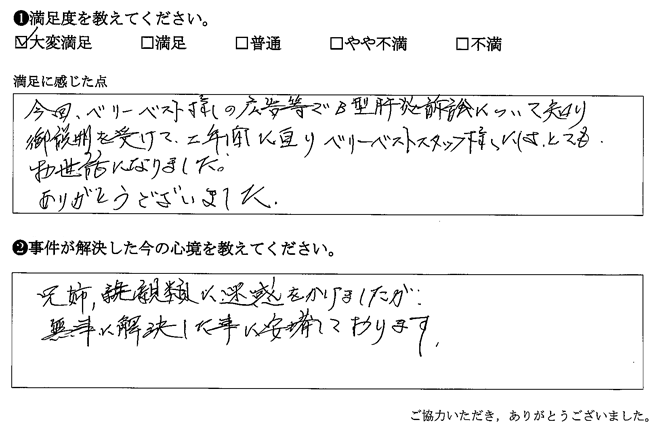 ❶満足度を教えてください。
☑大変満足 □満足 □普通 □やや不満 □不満
満足に感じた点
今回、ベリーベスト様の広告等でB型肝炎訴訟について知り
御説明を受けて、二年間に亘りベリーベストスタッフ様には、とても、
お世話になりました。
ありがとうございました。
❷事件が解決した今の心境を教えてください。
兄姉、親類に迷惑をかけましたが、
無事に解決した事に安堵しております。
ご協力いただき，ありがとうございました。